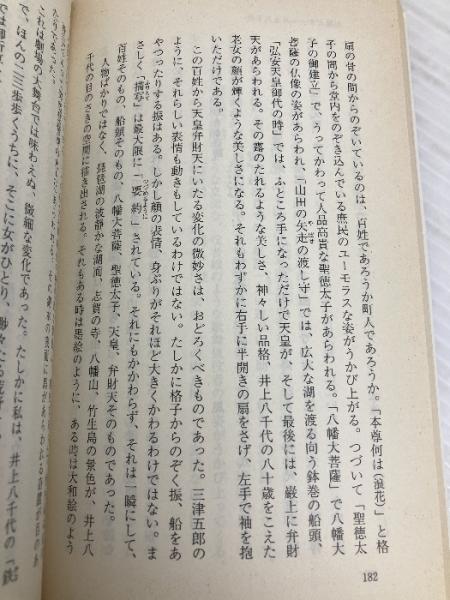 扇の骨の間からのぞいているのは、百姓であろうか町人であろうか。「本尊何は(浪花)」と格
子の間から堂内をのぞき込んでいる庶民のユーモラスな姿がうかび上がる。つづいて「聖徳太
子の御建立」で、うってかわって人品高貴な聖徳太子があらわれる。「八幡大菩薩」で八幡大
菩薩の仏像の姿があらわれ、「山田の矢走の渡し守」では、広大な湖を渡る向う鉢巻の船頭、
「弘安天皇御代の時」では、ふところ手になっただけで天皇が、そして最後には、巌上に弁財
天があらわれる。その露のたれるような美しさ、神々しい品格、井上八千代の八十歳をこえた
老女の顔が輝くような美しさになる。それもわずかに右手に半開きの扇をさげ、左手で袖を抱
いただけである。
この百姓から天皇弁財天にいたる変化の微妙さは、おどろくべきものであった。三津五郎の
ように、それらしい表情も動きもしているわけではない。たしかに格子からのぞく振、船をあ
やつったりする振はある。しかし顔の表情、身ぶりがそれほど大きくかわるわけではない。ま
さしく「」は最大限に「要約」されている。それにもかかわらず、それは一瞬にして、
百姓そのもの、船頭そのもの、八幡大菩薩、聖徳太子、天皇、弁財天そのものであった。
人物ばかりではなく、琵琶湖の波静かな湖面、志賀の寺、八幡山、竹生島の景色が、井上八
千代の目のさきの空間に描き出される。それもある時は墨絵のように、ある時は大和絵のよう
これは劇場の大舞台では味わえぬ、微細な変化であった。たしかに私は、井上八千代の「
で、ほんの二三歩歩くうちに、そこに女がひとり、
182